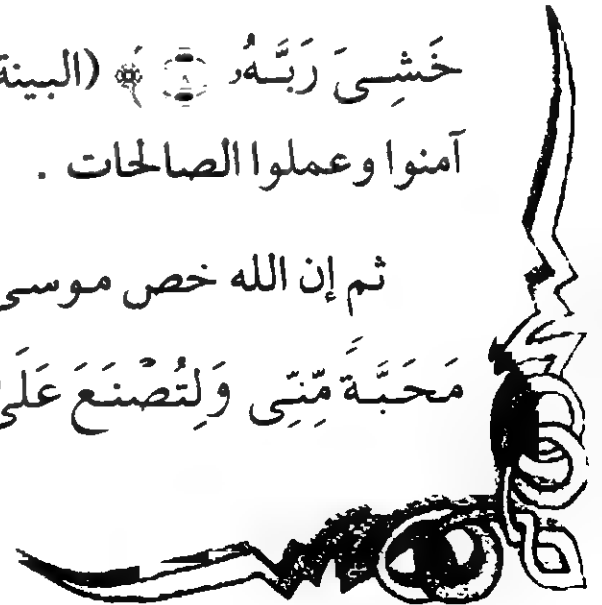 خَشِىَ رَبَّهُۥ ۝٨ ﴾ (البينة
آمنوا وعملوا الصالحات .
ثم إن الله خص موسى
مَحَبَّةً مِّنِّى وَلِتُصْنَعَ عَلَىٰ